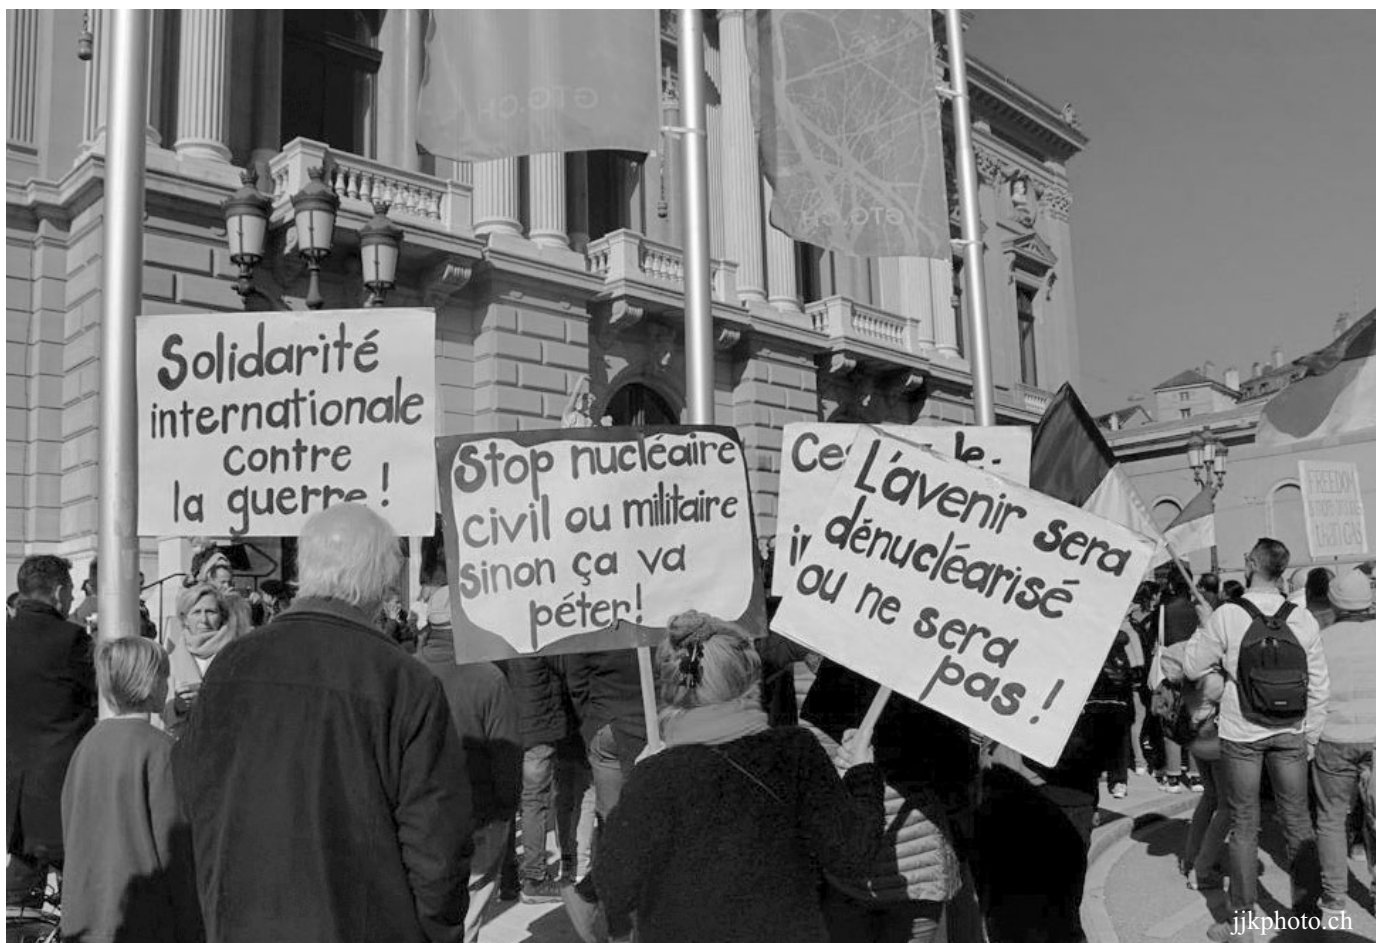 GTG.CH
GTG.CH
Solidarité
internationale
contre
la guerre!
Stop nucléaire
civil ou militaire
sinon ça va
péter!
Ce
le
L'avenir sera
dénucléarisé
ou ne sera
pas!
FREEDOM
jjkphoto.ch